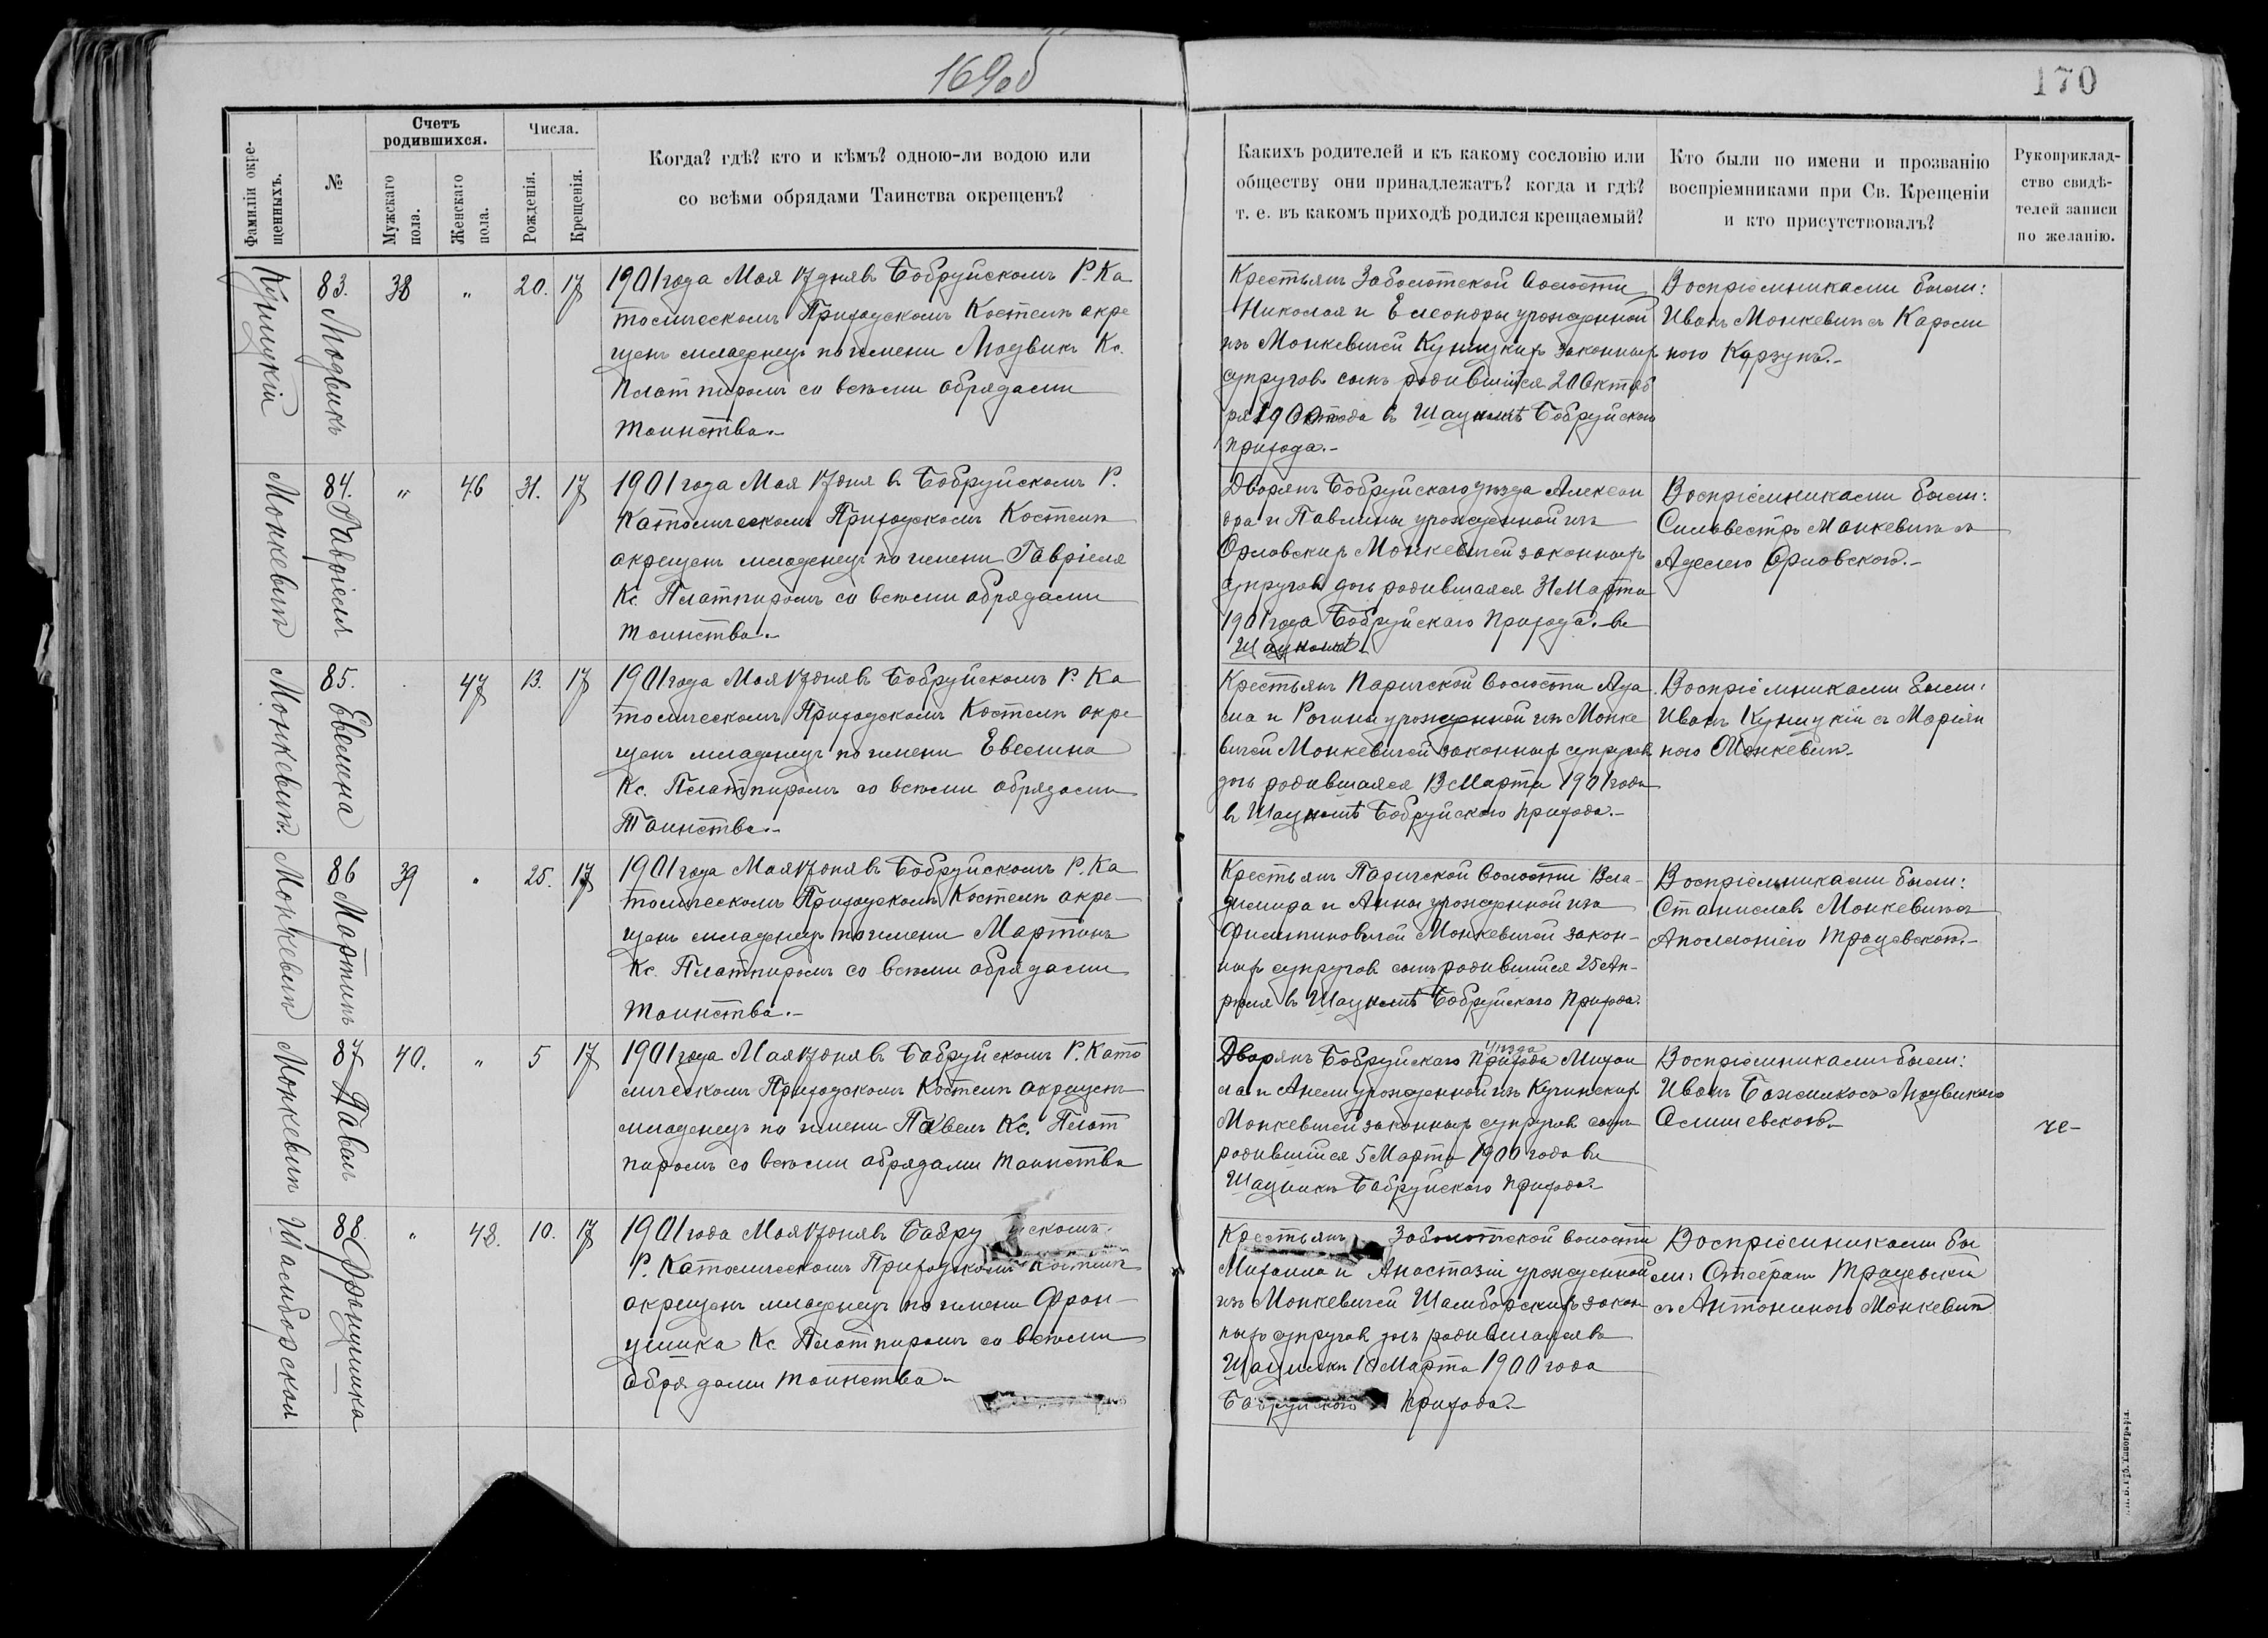 169об
170
Фамиліи окре-
щенныхъ.
№
Счетъ
родившихся.
Мужскаго
пола.
Женскаго
пола.
Числа.
Рожденія.
Крещенія.
Когда? гдѣ? кто и кѣмъ? одною-ли водою или
со всѣми обрядами Таинства окрещенъ?
Какихъ родителей и къ какому сословію или
обществу они принадлежатъ? когда и гдѣ?
т. е. въ какомъ приходѣ родился крещаемый?
Кто были по имени и прозванію
воспріемниками при Св. Крещеніи
и кто присутствовалъ?
Рукоприклад-
ство свидѣ-
телей записи
по желанію.
Куницкій
83. Людвикъ
38 " 20. 17
1901 года Мая 17 дня въ Бобруйскомъ Р. Ка
толическомъ Приходскомъ Костелѣ окре
щенъ младенецъ по имени Людвикъ Кс.
Плятпиромъ со всѣми обрядами
таинства.-
Крестьянъ Заболотской волости
Николая и Елеоноры урожденной
изъ Монкевичей Куницкихъ законныхъ
супруговъ сынъ родившійся 20 Октяб
ря 1900 года въ Шацилкѣ Бобруйскаго
прихода.-
Воспріемниками были:
Иванъ Монкевичъ съ Кароли
ною Карзунъ.-
Монкевичъ
84. Гавріеля
" 46 31. 17
1901 года Мая 17 дня въ Бобруйскомъ Р.
Католическомъ Приходскомъ Костелѣ
окрещенъ младенецъ по имени Гавріеля
Кс. Плятпиромъ со всѣми обрядами
таинства.-
Дворянъ Бобруйскаго уѣзда Алексан
дра и Павлины урожденной изъ
Орловскихъ Монкевичей законныхъ
супруговъ дочь родившаяся 31 Марта
1901 года Бобруйскаго прихода.- въ
Воспріемниками были:
Сильвестръ Монкевичъ съ
Аделею Орловскою.-
Монкевичъ.
85. Евелина
47 13. 17
1901 года Мая 17 дня въ Бобруйскомъ Р. Ка
толическомъ Приходскомъ Костелѣ окре
щенъ младенецъ по имени Евелина
Кс. Плятпиромъ со всѣми обрядами
Таинства.-
Крестьянъ Паричской волости Ада
ма и Рогины урожденной изъ Монке
вичей Монкевичей законныхъ супруговъ
дочь родившаяся 13 Марта 1901 года
въ Шацилкѣ Бобруйскаго прихода.-
Воспріемниками были:
Иванъ Куницкій съ Маріян
ною Монкевичъ-
Монкевичъ
86 Мартинъ
39 " 25. 17
1901 года Мая 17 дня въ Бобруйскомъ Р. Ка
толическомъ Приходскомъ Костелѣ окре-
щенъ младенецъ по имени Мартинъ
Кс. Плятпиромъ со всѣми обрядами
таинства.-
Крестьянъ Паричской волости Вла-
димира и Анны урожденной изъ
Филипповичей Монкевичей закон-
ныхъ супруговъ сынъ родившійся 25 Ап-
рѣля въ Шацилкѣ Бобруйскаго прихода.
Воспріемниками были:
Станиславъ Монкевичъ съ
Аполлоніею Трацевскою.-
Монкевичъ
87 Павелъ
40. " 5 17
1901 года Мая 17 дня въ Бобруйскомъ Р. Като
лическомъ Приходскомъ Костелѣ окрещенъ
младенецъ по имени Павелъ Кс. Плят
пиромъ со всѣми обрядами таинства
уѣзда
Дворянъ Бобруйскаго прихода Михаи
ла и Анели урожденной изъ Кучинскихъ
Монкевичей законныхъ супруговъ сынъ
родившійся 5 Марта 1900 года въ
Шацилкѣ Бобруйскаго прихода-
Воспріемниками были:
Иванъ Божилко съ Людвикою
че-
Шамборская
88. Францишка
" 48. 10. 17
1901 года Мая 17 дня въ Бобруйскомъ
Р. Католическомъ Приходскомъ Костелѣ
окрещенъ младенецъ по имени Фран-
цишка Кс. Плятпиромъ со всѣми
обрядами таинства-
Крестьянъ Заболотской волости
Михаила и Анастазіи урожденной
изъ Монкевичей Шамборскихъ закон
ныхъ супруговъ дочь родившаяся въ
Шацилкѣ 10 Марта 1900 года
Бобруйскаго прихода.-
Воспріемниками бы
ли: Стефанъ Трацевскій
съ Антониною Монкевичъ